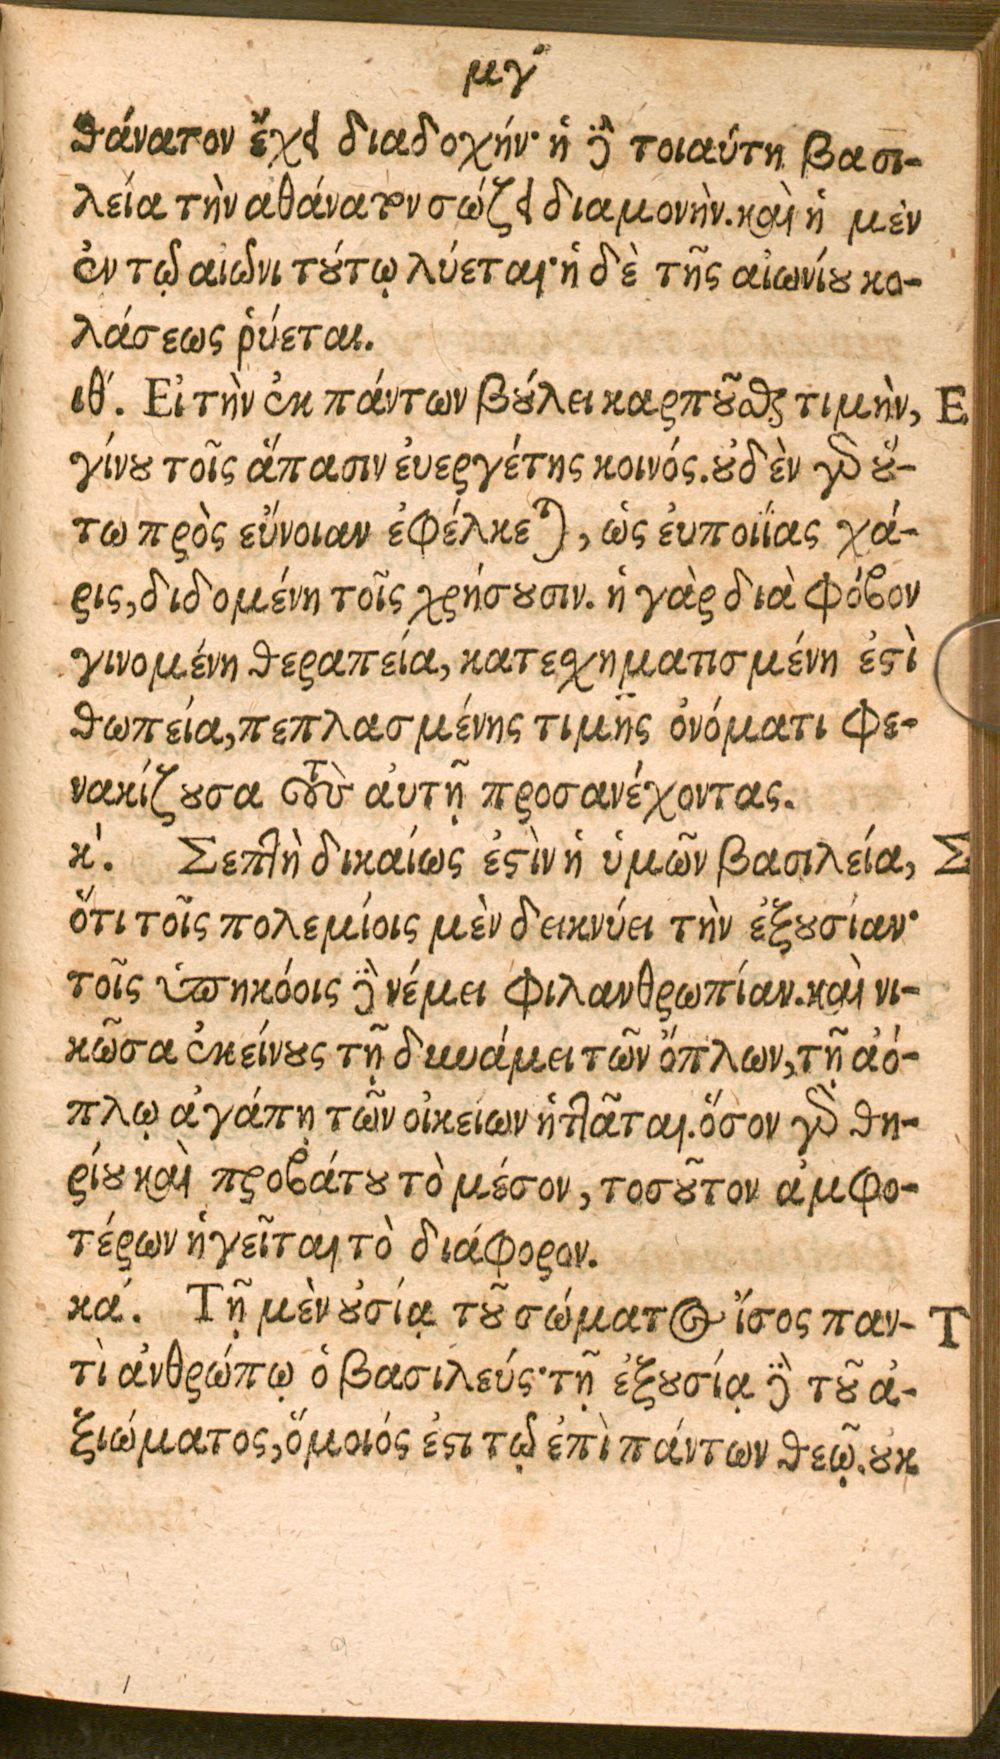 μγʹ
θάνατον ἔχει διαδοχήν· ἡ δὲ τοιαύτη βασι-
λεία τὴν αθάνατον σώζει διαμονὴν. καὶ ἡ μὲν
ἐν τῷ αἰῶνι τούτῳ λύεται· ἡ δὲ τῆς αἰωνίου κο-
λάσεως ῥύεται.
ιθʹ. Εἰ τὴν ἐκ πάντων βούλει καρποῦσθαι τιμὴν, Ε
γίνου τοῖς ἅπασιν ἐυεργέτης κοινός. οὐδὲν γὰρ οὕ-
τω πρὸς εὔνοιαν ἐφέλκεται, ὡς ἐυποιΐας χά-
ρις, διδομένη τοῖς χρήσουσιν. ἡ γὰρ διὰ φόβον
γινομένη θεραπεία, κατεσχηματισμένη ἐστὶ
θωπεία, πεπλασμένης τιμῆς ὀνόματι φε-
νακίζουσα τοὺς ἀυτῇ προσανέχοντας.
κʹ. Σεπτὴ δικαίως ἐστὶν ἡ ὑμῶν βασιλεία, Σ
ὅτι τοῖς πολεμίοις μὲν δεικνύει τὴν ἐξουσίαν·
τοῖς ὑπηκόοις δὲ νέμει φιλανθρωπίαν. καὶ νι-
κῶσα ἐκείνους τῇ δυνάμει τῶν ὅπλων, τῇ ἀό-
πλῳ ἀγάπῃ τῶν οἰκείων ἡττᾶται. ὅσον γὰρ θη-
ρίου καὶ προβάτου τὸ μέσον, τοσοῦτον ἀμφο-
τέρων ἡγεῖται τὸ διάφορον.
κάʹ. Τῇ μὲν οὐσίᾳ τοῦ σώματος ἴσος παν- Τ
τὶ ἀνθρώπῳ ὁ βασιλεύς· τῇ ἐξουσίᾳ δὲ τοῦ ἀ-
ξιώματος, ὅμοιός ἐστι τῷ ἐπὶ πάντων θεῷ. οὐκ